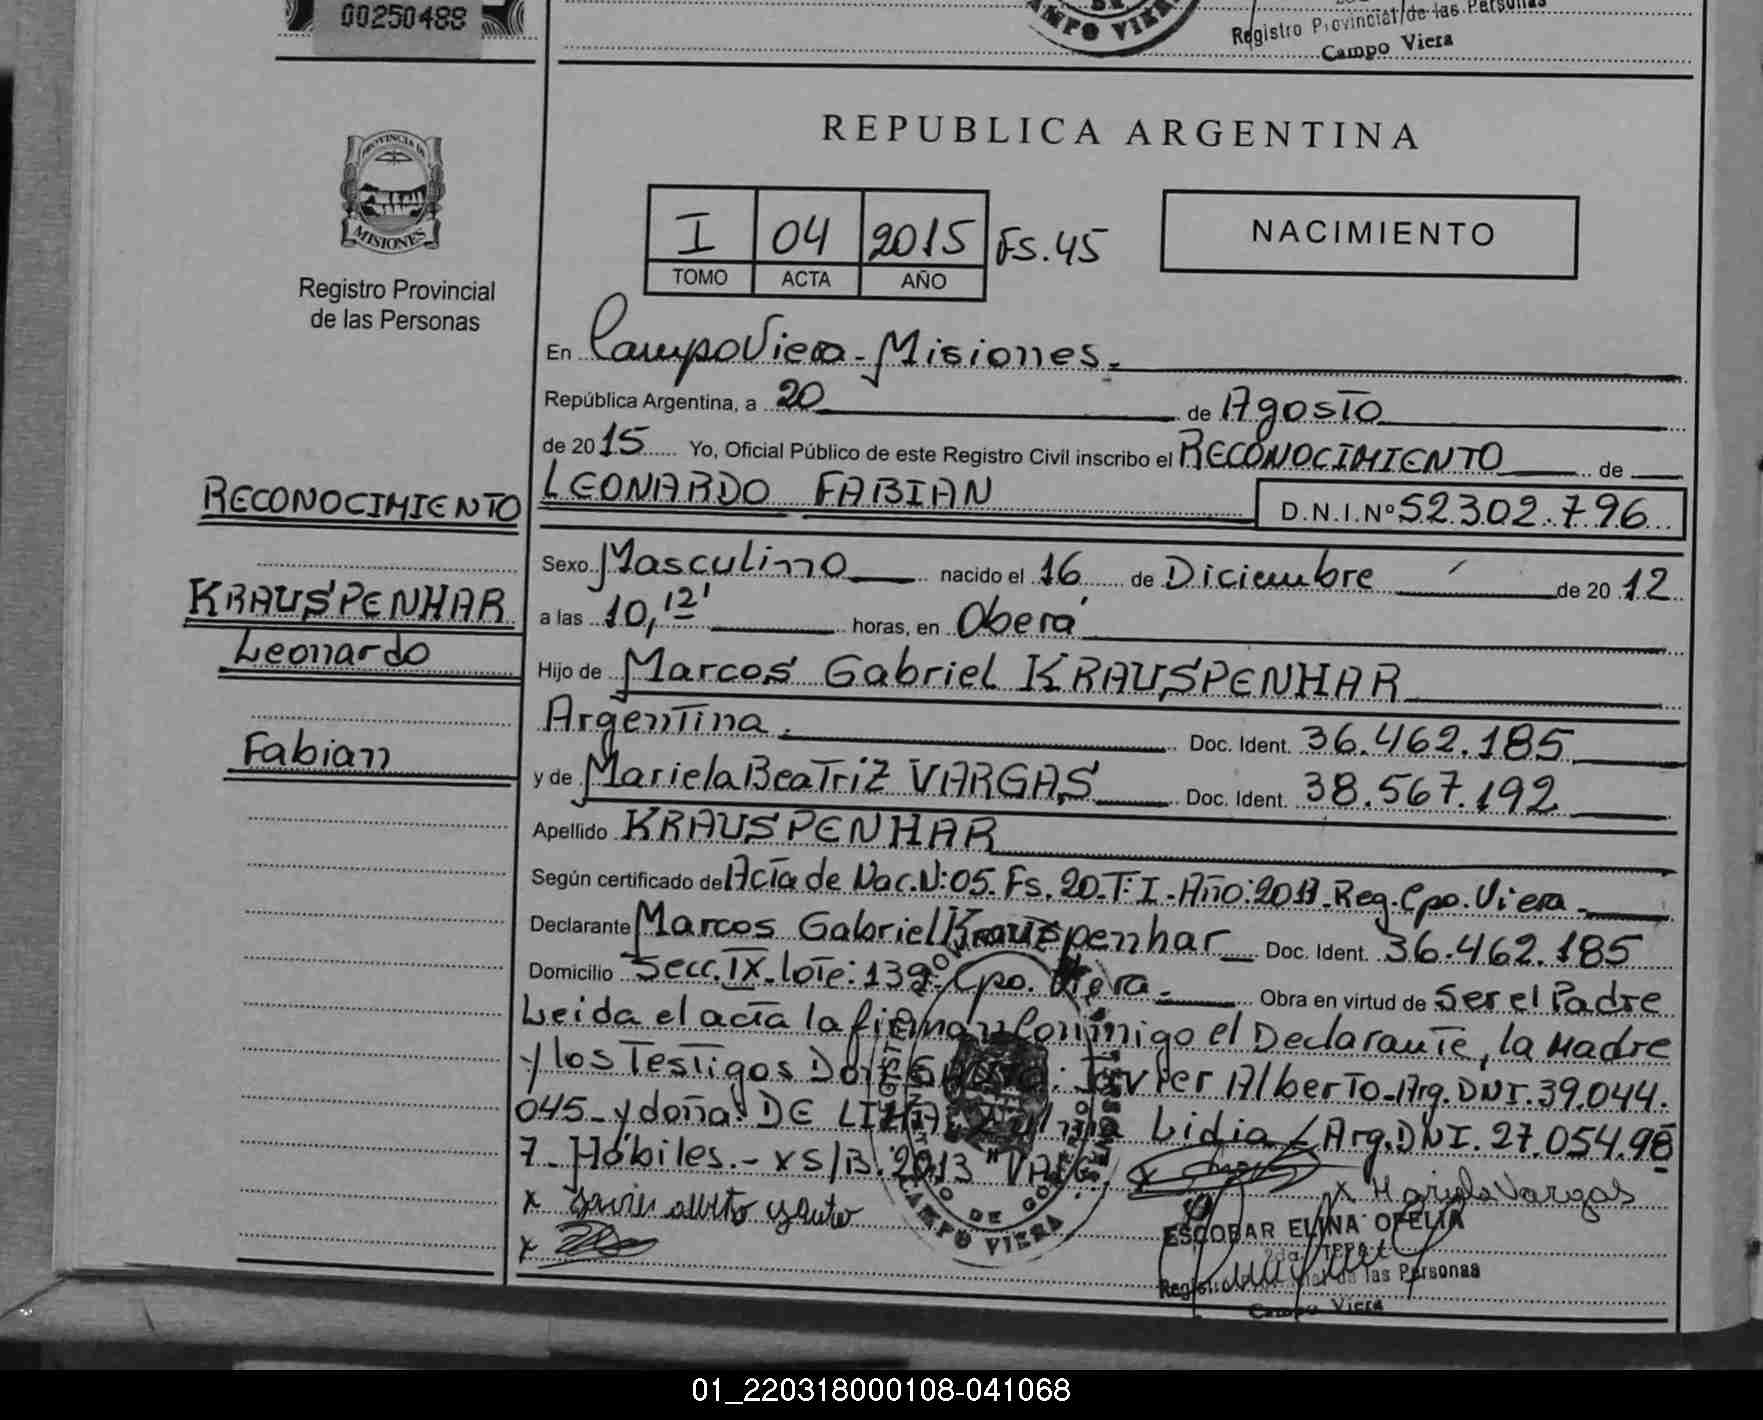 00250488
Registro Provincial de las Personas
Campo Viera
CAMPO VIERA
REPUBLICA ARGENTINA
PROVINCIA DE
MISIONES
Registro Provincial
de las Personas
I 04 2015 Fs.45
TOMO ACTA AÑO
NACIMIENTO
En Campo Viera - Misiones.
República Argentina, a 20 de Agosto
de 2015 Yo, Oficial Público de este Registro Civil inscribo el RECONOCIMIENTO de
RECONOCIMIENTO
LEONARDO FABIAN D.N.I.Nº 52.302.796
Sexo Masculino nacido el 16 de Diciembre de 2012
KRAUSPENHAR
a las 10,12' horas, en Oberá
Leonardo
Hijo de Marcos Gabriel KRAUSPENHAR
Argentina. Doc. Ident. 36.462.185
Fabian
y de Mariela Beatriz VARGAS Doc. Ident. 38.567.192
Apellido KRAUSPENHAR
Según certificado de Acta de Nac.N:05. Fs. 20.T:I. Año:2013.Reg.Cpo.Viera.
Declarante Marcos Gabriel Krauspenhar Doc. Ident. 36.462.185
Domicilio Secc.IX.lote:139.Cpo. Viera. Obra en virtud de Ser el Padre
Leida el acta la firman Conmigo el Declarante, la Madre
y los Testigos Don Javier Alberto-Arg.DNI.39.044.
045-y doña: DE LIMA Lidia/Arg.DNI.27.054.98
7-Hábiles.- x S/B.2013 "VALE".
x Javier alberto
x Mariela Vargas
x
ESCOBAR ELINA OFELIA
Registro Provincial de las Personas
Campo Viera
CAMPO VIERA
01_220318000108-041068